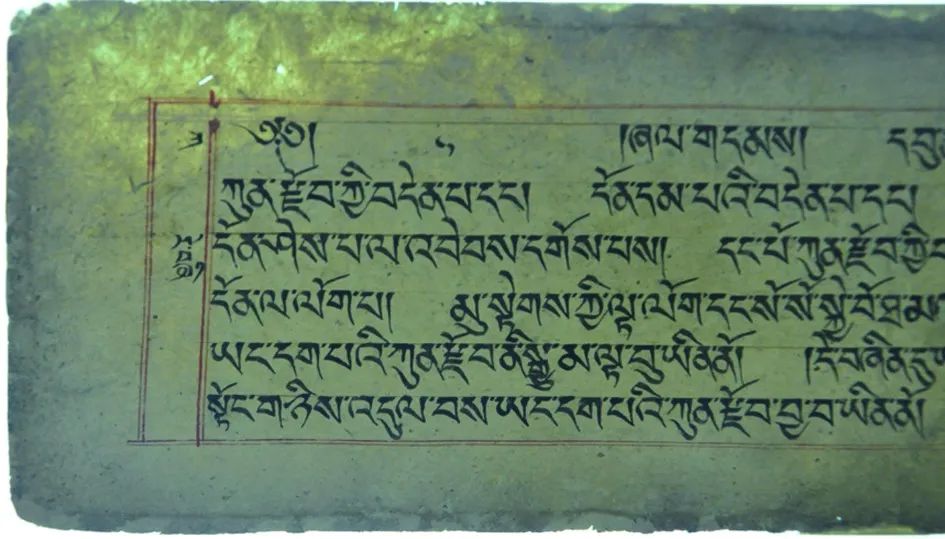 ༄༅། །ཞལ་གདམས། དབུ
ཀུན་རྫོབ་ཀྱི་བདེན་པ་དང། དོན་དམ་པའི་བདེན་པ་དང།
དོན་ཤེས་པ་ལ་འབེབས་དགོས་པས།། དང་པོ་ཀུན་རྫོབ་ཀྱི་
དོན་ལ་ལོག་པ།། མུ་སྟེགས་ཀྱི་ལྟ་ལོག་དང་སོ་སོ་སྐྱེ་བོ་ཐ་མ
ཡང་དག་པའི་ཀུན་རྫོབ་ནི་སྒྱུ་མ་ལྟ་བུ་ཡིནནོ། །དེ་བཞིན་དུ
སྟོང་ག་ཉིས་འདུལ་བས་ཡང་དག་པའི་ཀུན་རྫོབ་བྱ་བ་ཡིནནོ།